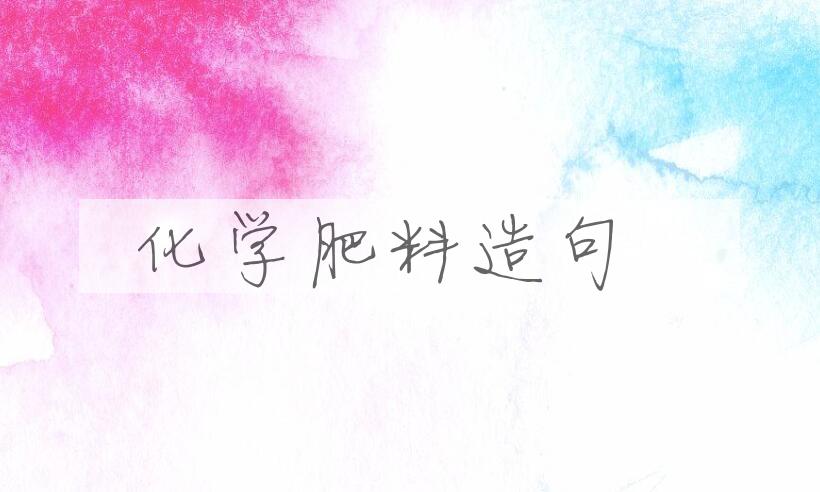 化学肥料造句